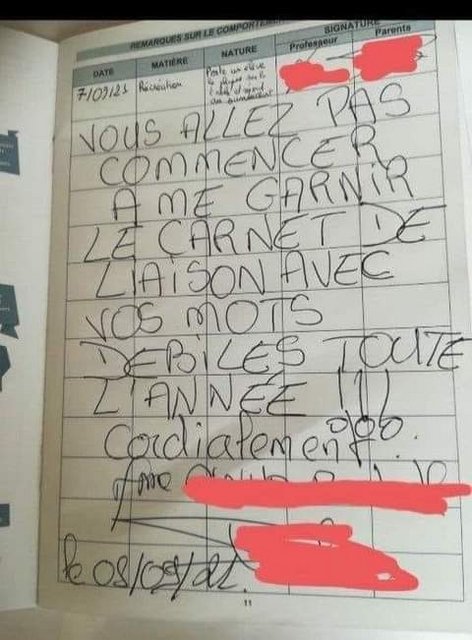 REMARQUES SUR LE COMPORTEMENT
SIGNATURE
DATE MATIÈRE NATURE Professeur Parents
7/09/21 Récréation
VOUS ALLEZ PAS
COMMENCER
A ME GARNIR
LE CARNET DE
LIAISON AVEC
VOS MOTS
DEBILES TOUTE
L'ANNÉE !!!
Cordialement.
Mme
le 08/09/21.
11